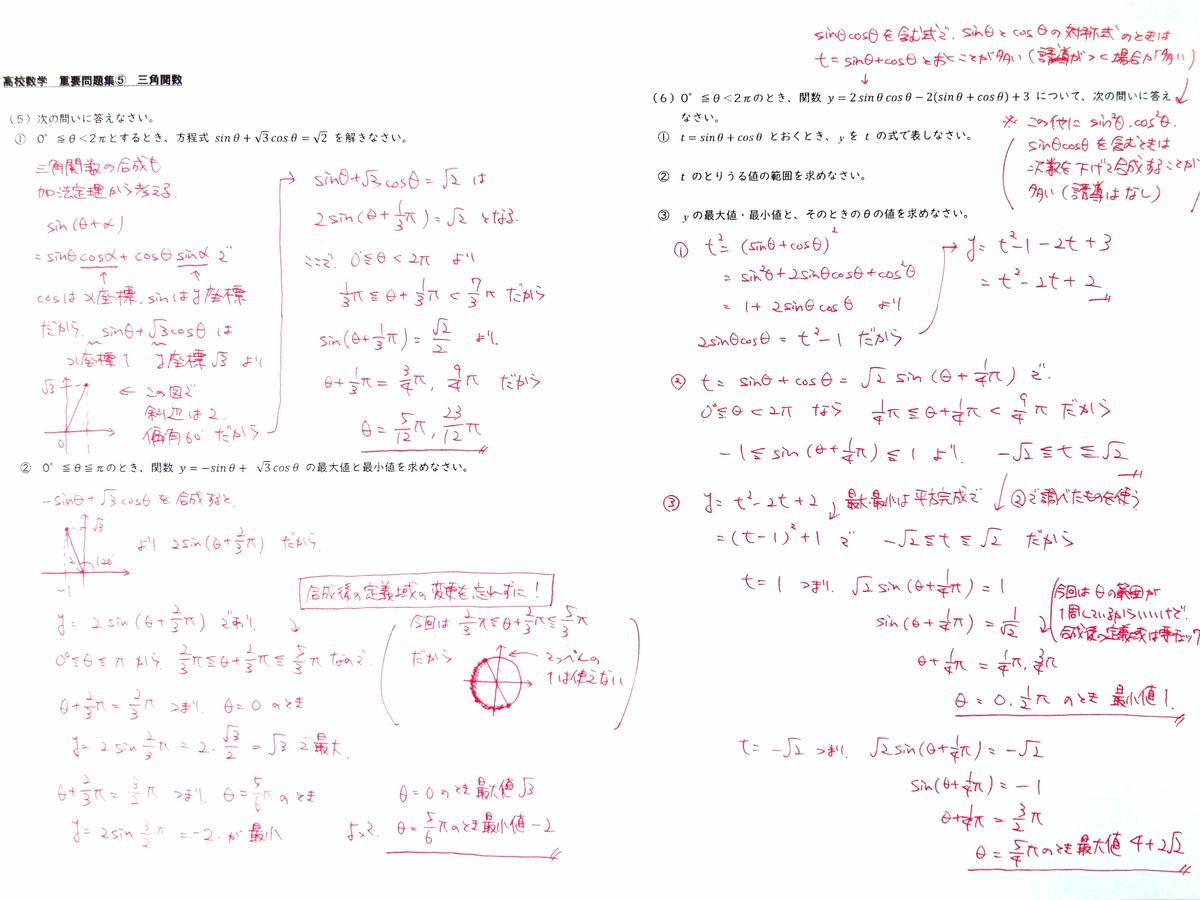 高校数学 重要問題集⑤ 三角関数
（５）次の問いに答えなさい。
① 0° ≦θ＜2πとするとき、方程式 sinθ+√3cosθ=√2 を解きなさい。
三角関数の合成も
加法定理から考える.
sin(θ+α)
=sinθcosα+cosθsinα で
↑ ↑
cosはx座標. sinはy座標
だから. sinθ+√3cosθ は
x座標1 y座標√3 より
√3
0 1
← この図で
斜辺は2.
偏角60°だから
→ sinθ+√3cosθ=√2 は
2sin(θ+1/3π)=√2 となる.
ここで. 0°≦θ<2π より
1/3π≦θ+1/3π<7/3π だから
sin(θ+1/3π)=√2/2 より.
θ+1/3π=3/4π, 9/4π だから
θ=5/12π, 23/12π
② 0° ≦θ≦πのとき、関数 y=−sinθ+ √3cosθ の最大値と最小値を求めなさい。
-sinθ+√3cosθ を合成すると
√3
2 120°
-1
より 2sin(θ+2/3π) だから.
合成後の定義域の変更を忘れずに！
y=2sin(θ+2/3π) であり. ↓
0°≦θ≦π から. 2/3π≦θ+2/3π≦5/3π なので.
θ+2/3π=2/3π つまり. θ=0 のとき
y=2sin2/3π=2・√3/2=√3 で最大.
θ+2/3π=3/2π つまり. θ=5/6πのとき
y=2sin3/2π=-2. が最小
(今回は 2/3π≦θ+2/3π≦5/3π
だから ← てっぺんの
1は使えない)
θ=0のとき最大値√3
よって. θ=5/6πのとき最小値-2
sinθcosθを含む式で. sinθとcosθの対称式のときは
t=sinθ+cosθとおくことが多い(誘導がつく場合が多い)
↓
（６）0° ≦θ＜2πのとき、関数 y=2sinθcosθ−2(sinθ+cosθ)+3 について、次の問いに答え
なさい。
① t=sinθ+cosθ とおくとき、y を t の式で表しなさい。
② t のとりうる値の範囲を求めなさい。
③ yの最大値・最小値と、そのときのθの値を求めなさい。
※ この他に sin²θ, cos²θ.
(sinθcosθを含むときは
次数を下げて合成することが
多い(誘導はなし))
① t²=(sinθ+cosθ)²
=sin²θ+2sinθcosθ+cos²θ
=1+2sinθcosθ より
2sinθcosθ=t²-1 だから
→ y=t²-1-2t+3
=t²-2t+2
② t=sinθ+cosθ=√2sin(θ+1/4π) で.
0°≦θ<2π なら 1/4π≦θ+1/4π<9/4π だから
-1≦sin(θ+1/4π)≦1 より. -√2≦t≦√2
③ y=t²-2t+2 最大最小は平方完成で ②で調べたものを使う
=(t-1)²+1 で -√2≦t≦√2 だから
t=1 つまり. √2sin(θ+1/4π)=1
sin(θ+1/4π)=1/√2
(今回はθの範囲が
1周しているからいいけど.
合成後の定義域は要チェック
θ+1/4π=1/4π, 3/4π
θ=0, 1/2π のとき 最小値1.
t=-√2 つまり. √2sin(θ+1/4π)=-√2
sin(θ+1/4π)=-1
θ+1/4π=3/2π
θ=5/4πのとき最大値 4+2√2